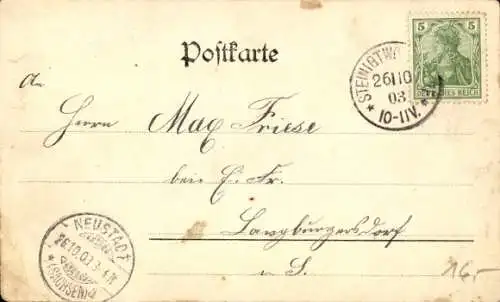 5
DEUTSCHES REICH
Postkarte
STEINIGTW
26 10
03
* 10-11V. *
An
Herrn Max Friese
bei E. Fr.
Langburgersdorf
i. S.
NEUSTADT
26.10.03
* (SACHSEN)
16,-